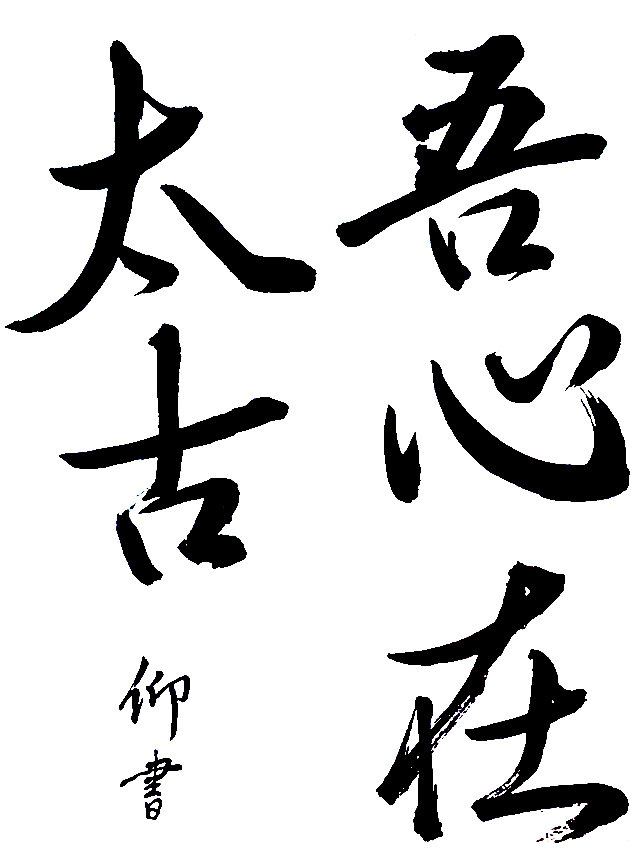 吾心在
太古
仰書